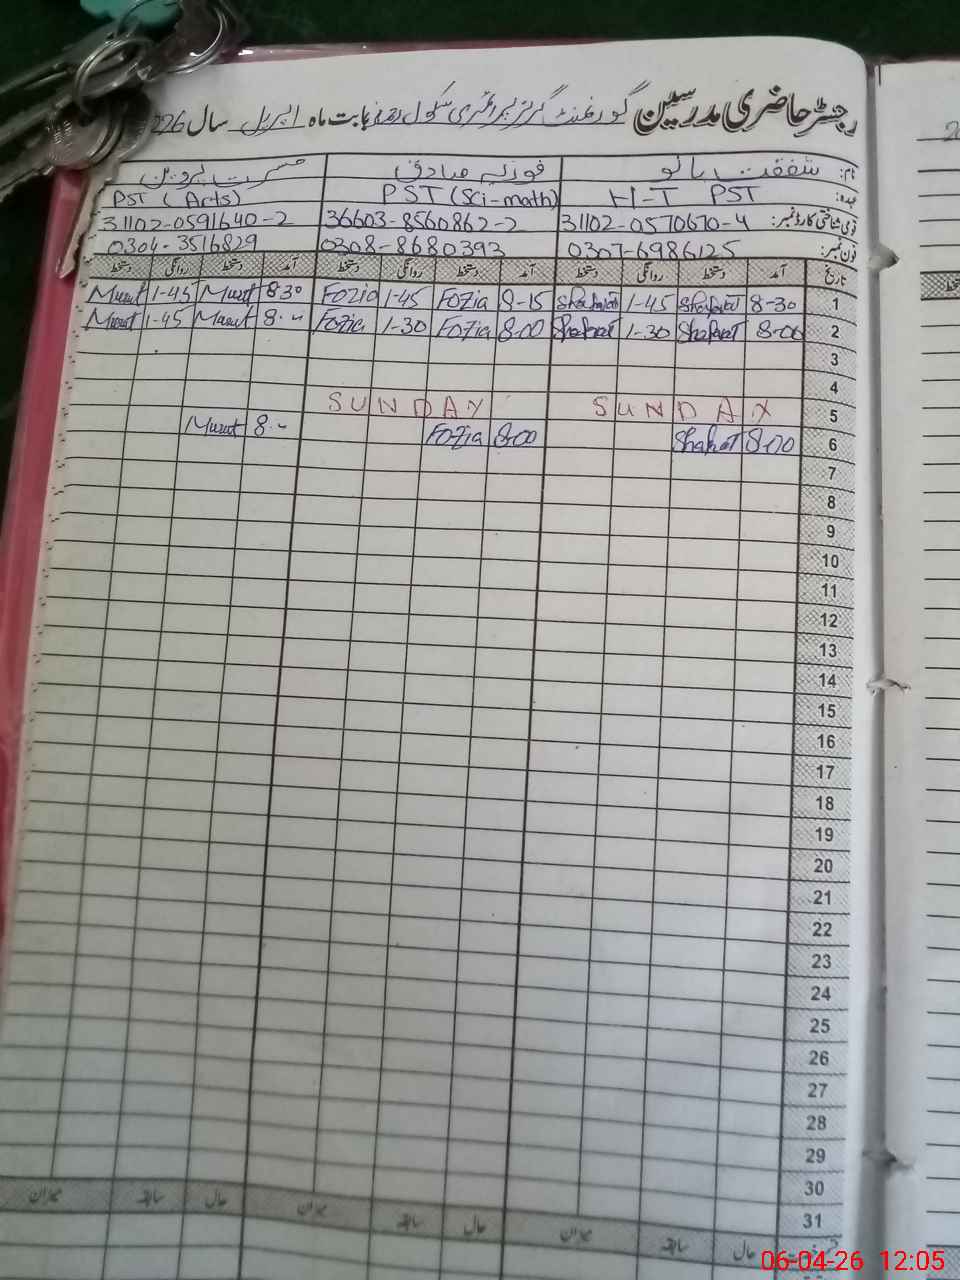 رجسٹر حاضری مدرسین گورنمنٹ گرلز پرائمری سکول بابت ماہ اپریل سال 226
نام: شفقت بانو فوزیہ صادق مسرت پروین
عہدہ: H-T PST PST (Sci-math) PST (Arts)
قومی شناختی کارڈ نمبر: 31102-0570670-4 36603-8560862-2 31102-0591640-2
فون نمبر: 0307-6986125 0308-8680393 0304-3516829
تاریخ آمد دستخط روانگی دستخط آمد دستخط روانگی دستخط آمد دستخط روانگی دستخط
1 8-30 Shafqat 1-45 Shafqat 8-15 Fozia 1-45 Fozia 8 30 Musrt 1-45 Musrt
2 8-00 Shafqat 1-30 Shafqat 8-00 Fozia 1-30 Fozia 8.. Musrt 1-45 Musrt
3
4
5 SUNDAY SUNDAY
6 8-00 Shafqat 8-00 Fozia 8.. Musrt
7
8
9
10
11
12
13
14
15
16
17
18
19
20
21
22
23
24
25
26
27
28
29
30
31
حال سابقہ میزان حال سابقہ میزان حال سابقہ میزان
06-04-26 12:05